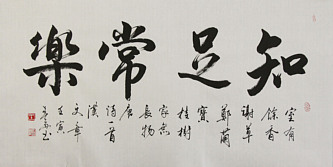 知足常樂
室有
餘香
謝草
鄭蘭
竇
桂樹
家無
長物
唐
詩一首
漢
文章
壬寅